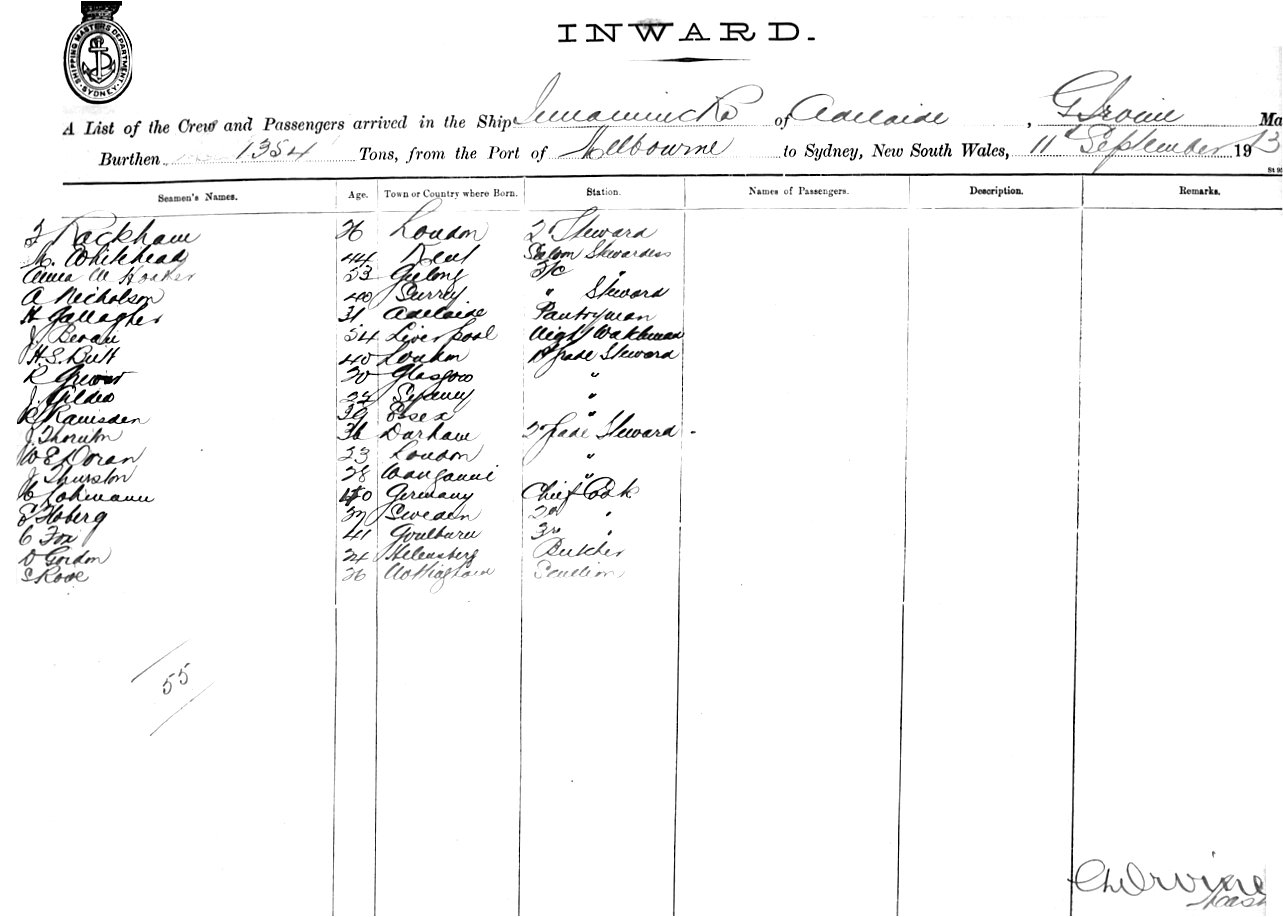 SHIPPING MASTERS DEPARTMENT SYDNEY
INWARD.
A List of the Crew and Passengers arrived in the Ship of Adelaide, G. Irvine Ma
Burthen 1354 Tons, from the Port of Melbourne to Sydney, New South Wales, 11th September 1913
Seamen's Names. Age. Town or Country where Born. Station. Names of Passengers. Description. Remarks.
Rackham 26 London 2d Steward
M. Whitehead 44 Kent Saloon Stewardess
Anna M Hooker 53 Geelong 2/c "
A Nicholson 40 Surrey " Steward
H Gallagher 31 Adelaide Pantryman
J. Bevan 54 Liverpool Night Watchman
H. S. Butt 40 London 1t Grade Steward
R 20 Glasgow "
J. Gildea 22 Sydney "
R Ramsden 39 Essex "
J Thornton 36 Durham 2d Grade Steward
W E Doran 23 London "
J Thurston 28 Wanganui "
Lohmann 40 Germany Chief Cook
Hoberg 37 Sweden 2nd "
C Fox 41 Goulburn 3rd "
D Gordon 24 Helensberg Butcher
S Rose 26 Nottingham Scullion
55
Irvine
Mas